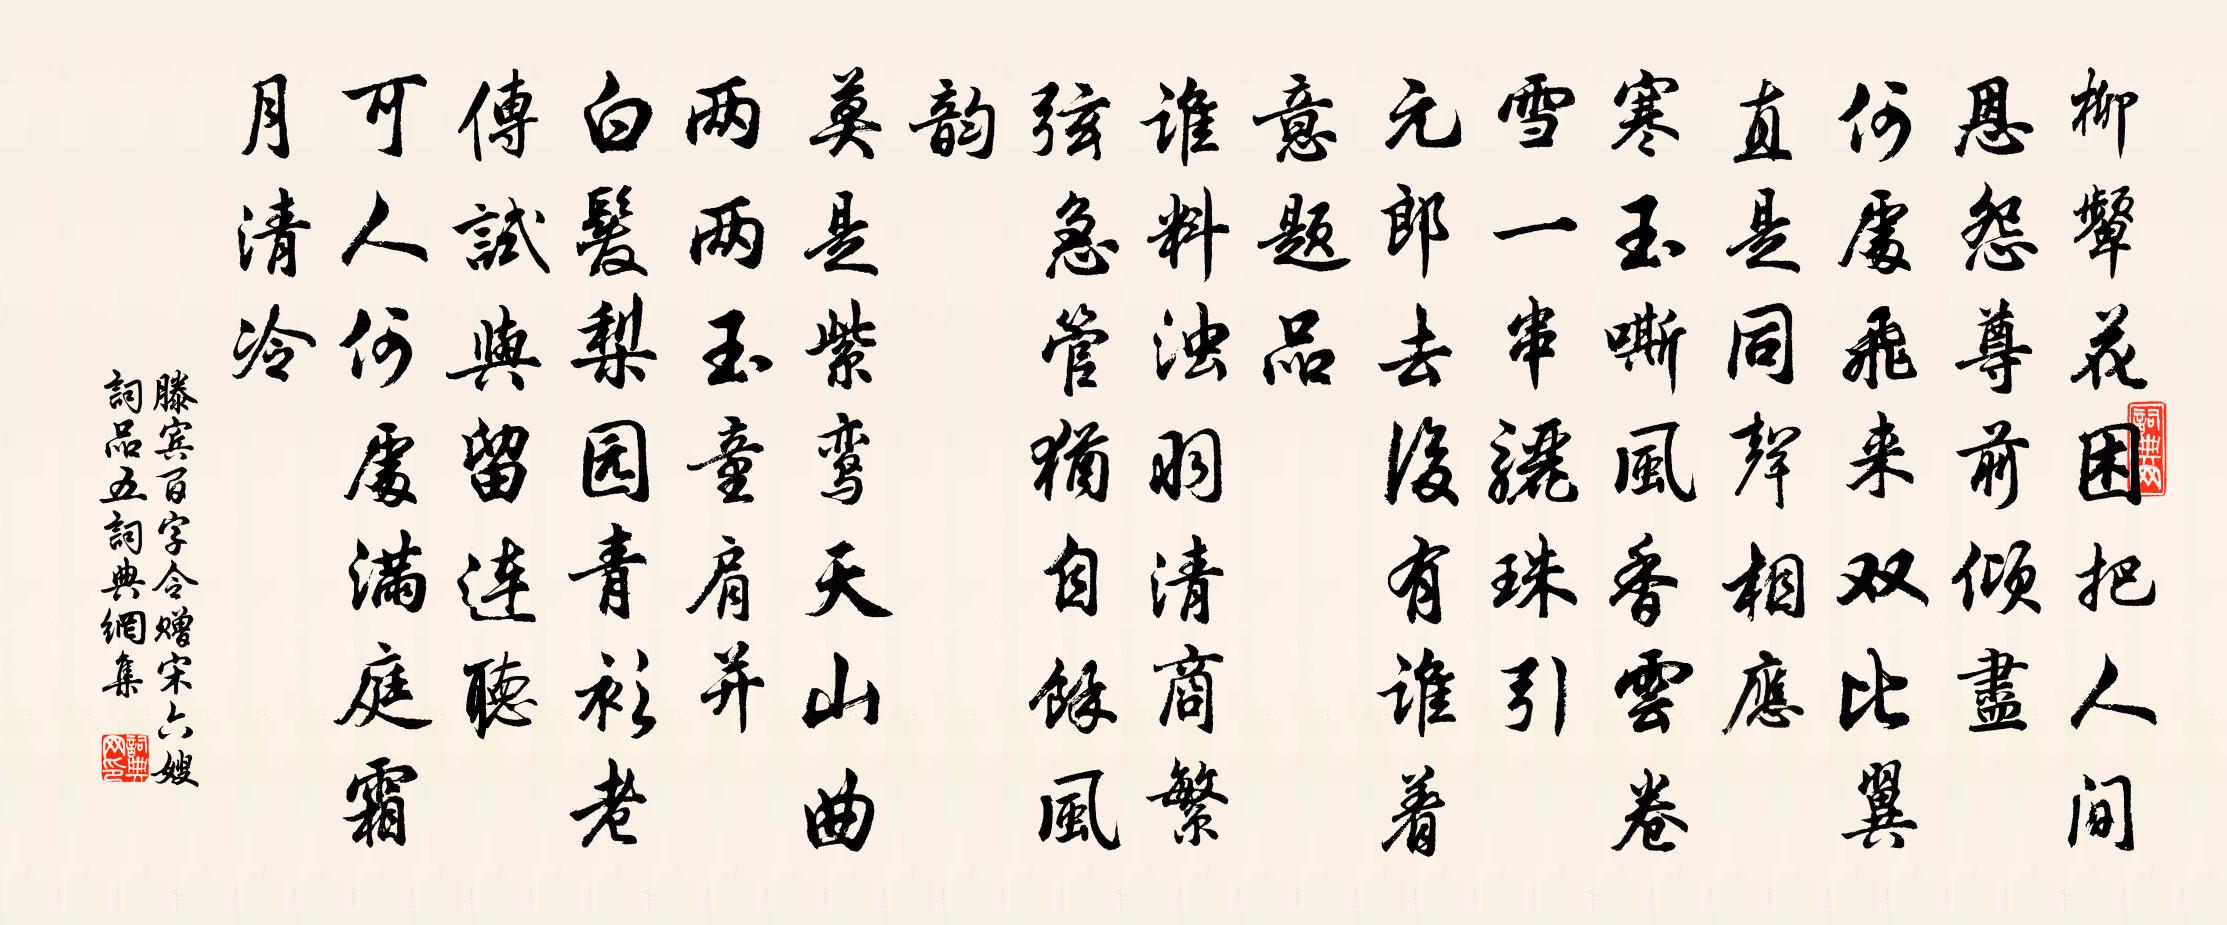 柳颦花困把人间
恩怨尊前倾盡
何處飛来双比翼
直是同聲相應
寒玉嘶風香雲卷
雪一串驪珠引
元郎去後有谁着
意题品
谁料浊羽清商繁
弦急管猶自餘風
韵
莫是紫鸾天山曲
两两玉童肩并
白髮梨园青衫老
傳試與留連聴
可人何處滿庭霜
月清冷
滕宾百字令赠宋六嫂
詞品五詞典網集
詞典网
詞典网印